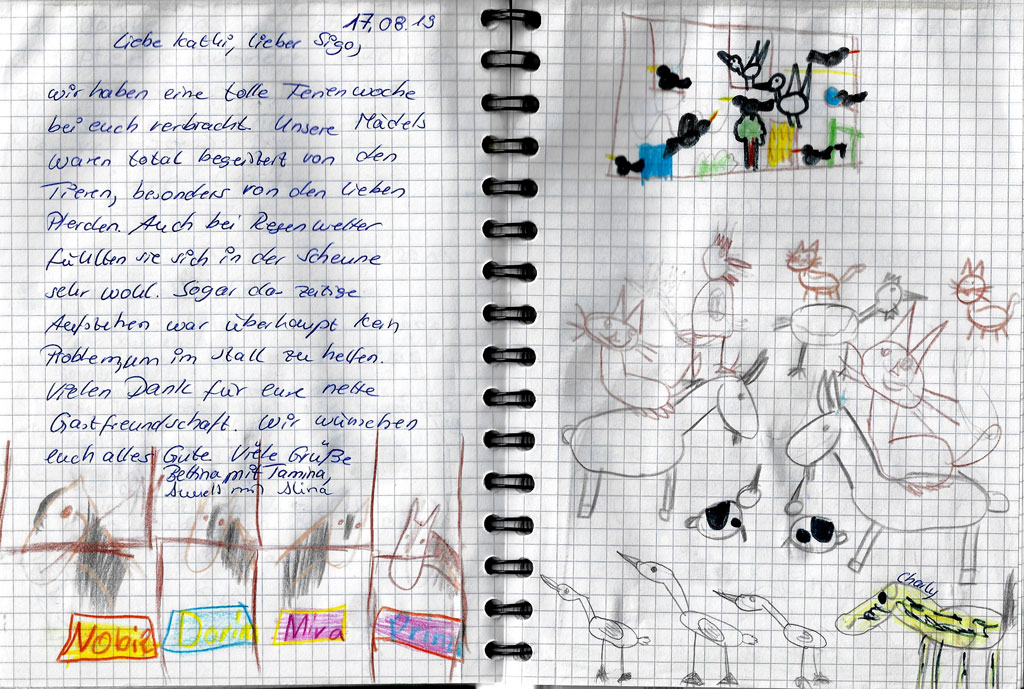 17.08.19
Liebe Kathi, lieber Sigo,
wir haben eine tolle Ferienwoche
bei euch verbracht. Unsere Mädels
waren total begeistert von den
Tieren, besonders von den lieben
Pferden. Auch bei Regenwetter
fühlten sie sich in der Scheune
sehr wohl. Sogar das zeitige
Aufstehen war überhaupt kein
Problem, um im Stall zu helfen.
Vielen Dank für eure nette
Gastfreundschaft. Wir wünschen
euch alles Gute Viele Grüße
Bettina mit Tamina,
mit Alina
Nobiz Dorin Mira
Charly